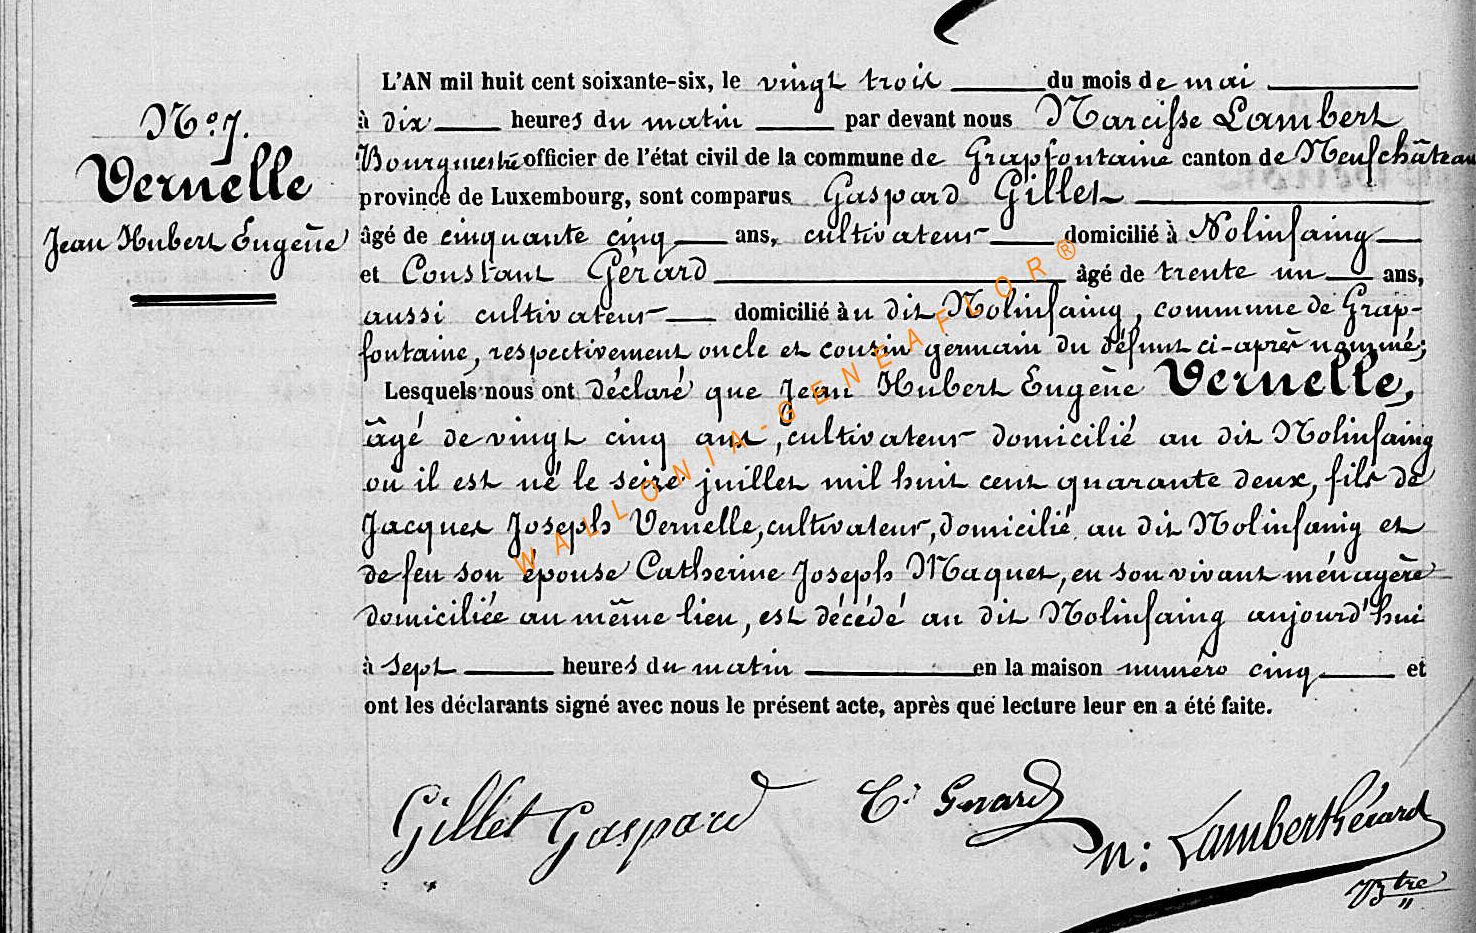 L'AN mil huit cent soixante-six, le vingt trois du mois de mai
à dix heures du matin par devant nous Narcisse Lambert
Bourgmestre officier de l'état civil de la commune de Grapfontaine canton de Neufchâteau
province de Luxembourg, sont comparus Gaspard Gillet
âgé de cinquante cinq ans, cultivateur domicilié à Nolinfaing
et Constant Gérard âgé de trente un ans,
aussi cultivateur domicilié au dit Nolinfaing, commune de Grap-
fontaine, respectivement oncle et cousin germain du défunt ci-après nommé;
Lesquels nous ont déclaré que Jean Hubert Eugène Vernelle,
âgé de vingt cinq ans, cultivateur domicilié au dit Nolinfaing
où il est né le seize juillet mil huit cent quarante deux, fils de
Jacques Joseph Vernelle, cultivateur, domicilié au dit Nolinfaing et
de feu son épouse Catherine Joseph Maquet, en son vivant ménagère
domiciliée au même lieu, est décédé au dit Nolinfaing aujourd'hui
à sept heures du matin en la maison numéro cinq et
ont les déclarants signé avec nous le présent acte, après que lecture leur en a été faite.
N° 7.
Vernelle
Jean Hubert Eugène
Gillet Gaspard
C. Gerard
N: Lambert Gérard
Btre
WALLONIA-GENEAFLOR®